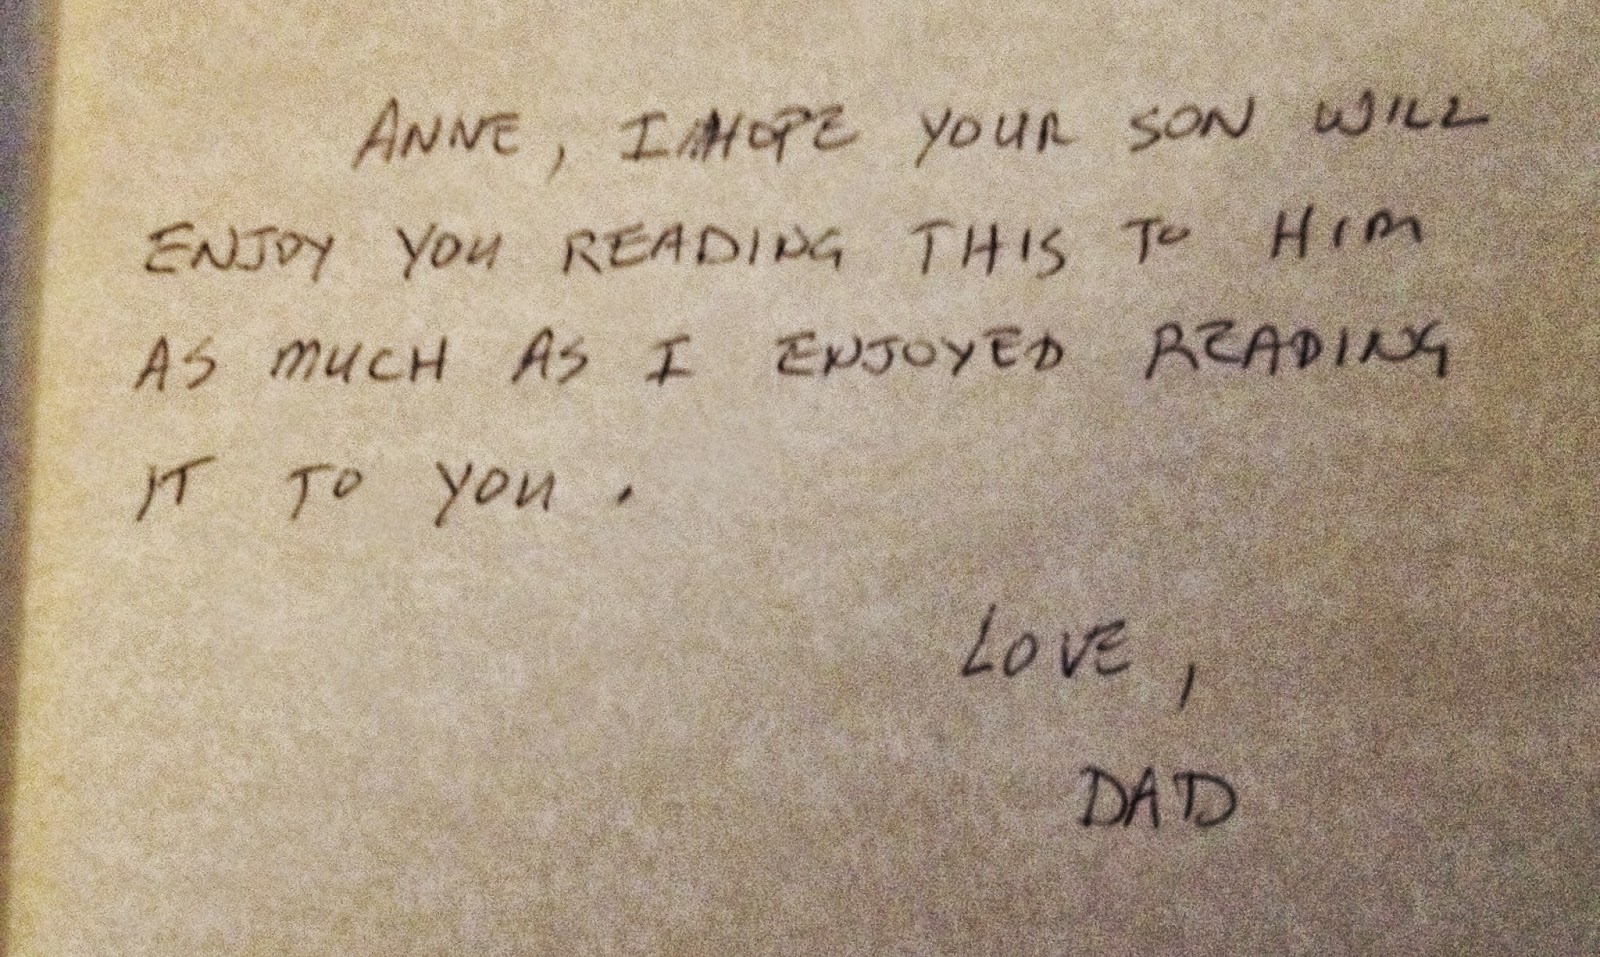 ANNE, I HOPE YOUR SON WILL
ENJOY YOU READING THIS TO HIM
AS MUCH AS I ENJOYED READING
IT TO YOU.
LOVE,
DAD